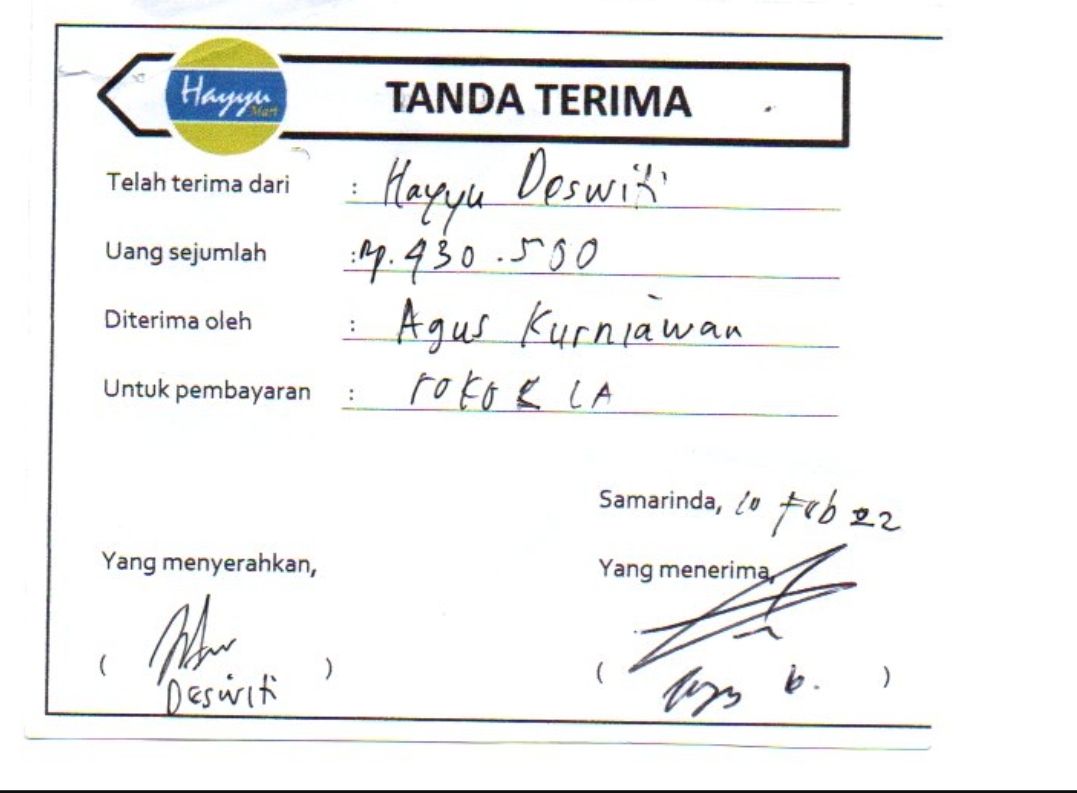 Hayyu
Mart
TANDA TERIMA
Telah terima dari : Hayyu Deswiti
Uang sejumlah : Rp. 430.500
Diterima oleh : Agus Kurniawan
Untuk pembayaran : rokok LA
Samarinda, 10 Feb 22
Yang menyerahkan, Yang menerima,
( Deswiti ) ( Agus k. )